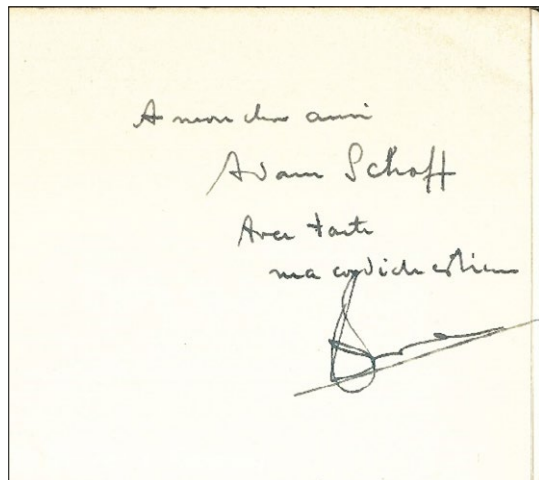 A mon cher ami
Adam Schaff
Avec toute
ma cordiale estime